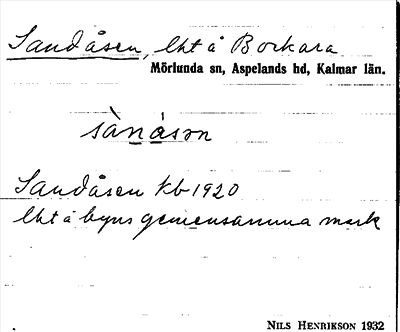 Sandåsen, lht å Borkara
Mörlunda sn, Aspelands hd, Kalmar län.
sànåsən
Sandåsen kb 1920
lht å byns gemensamma mark
NILS HENRIKSON 1932